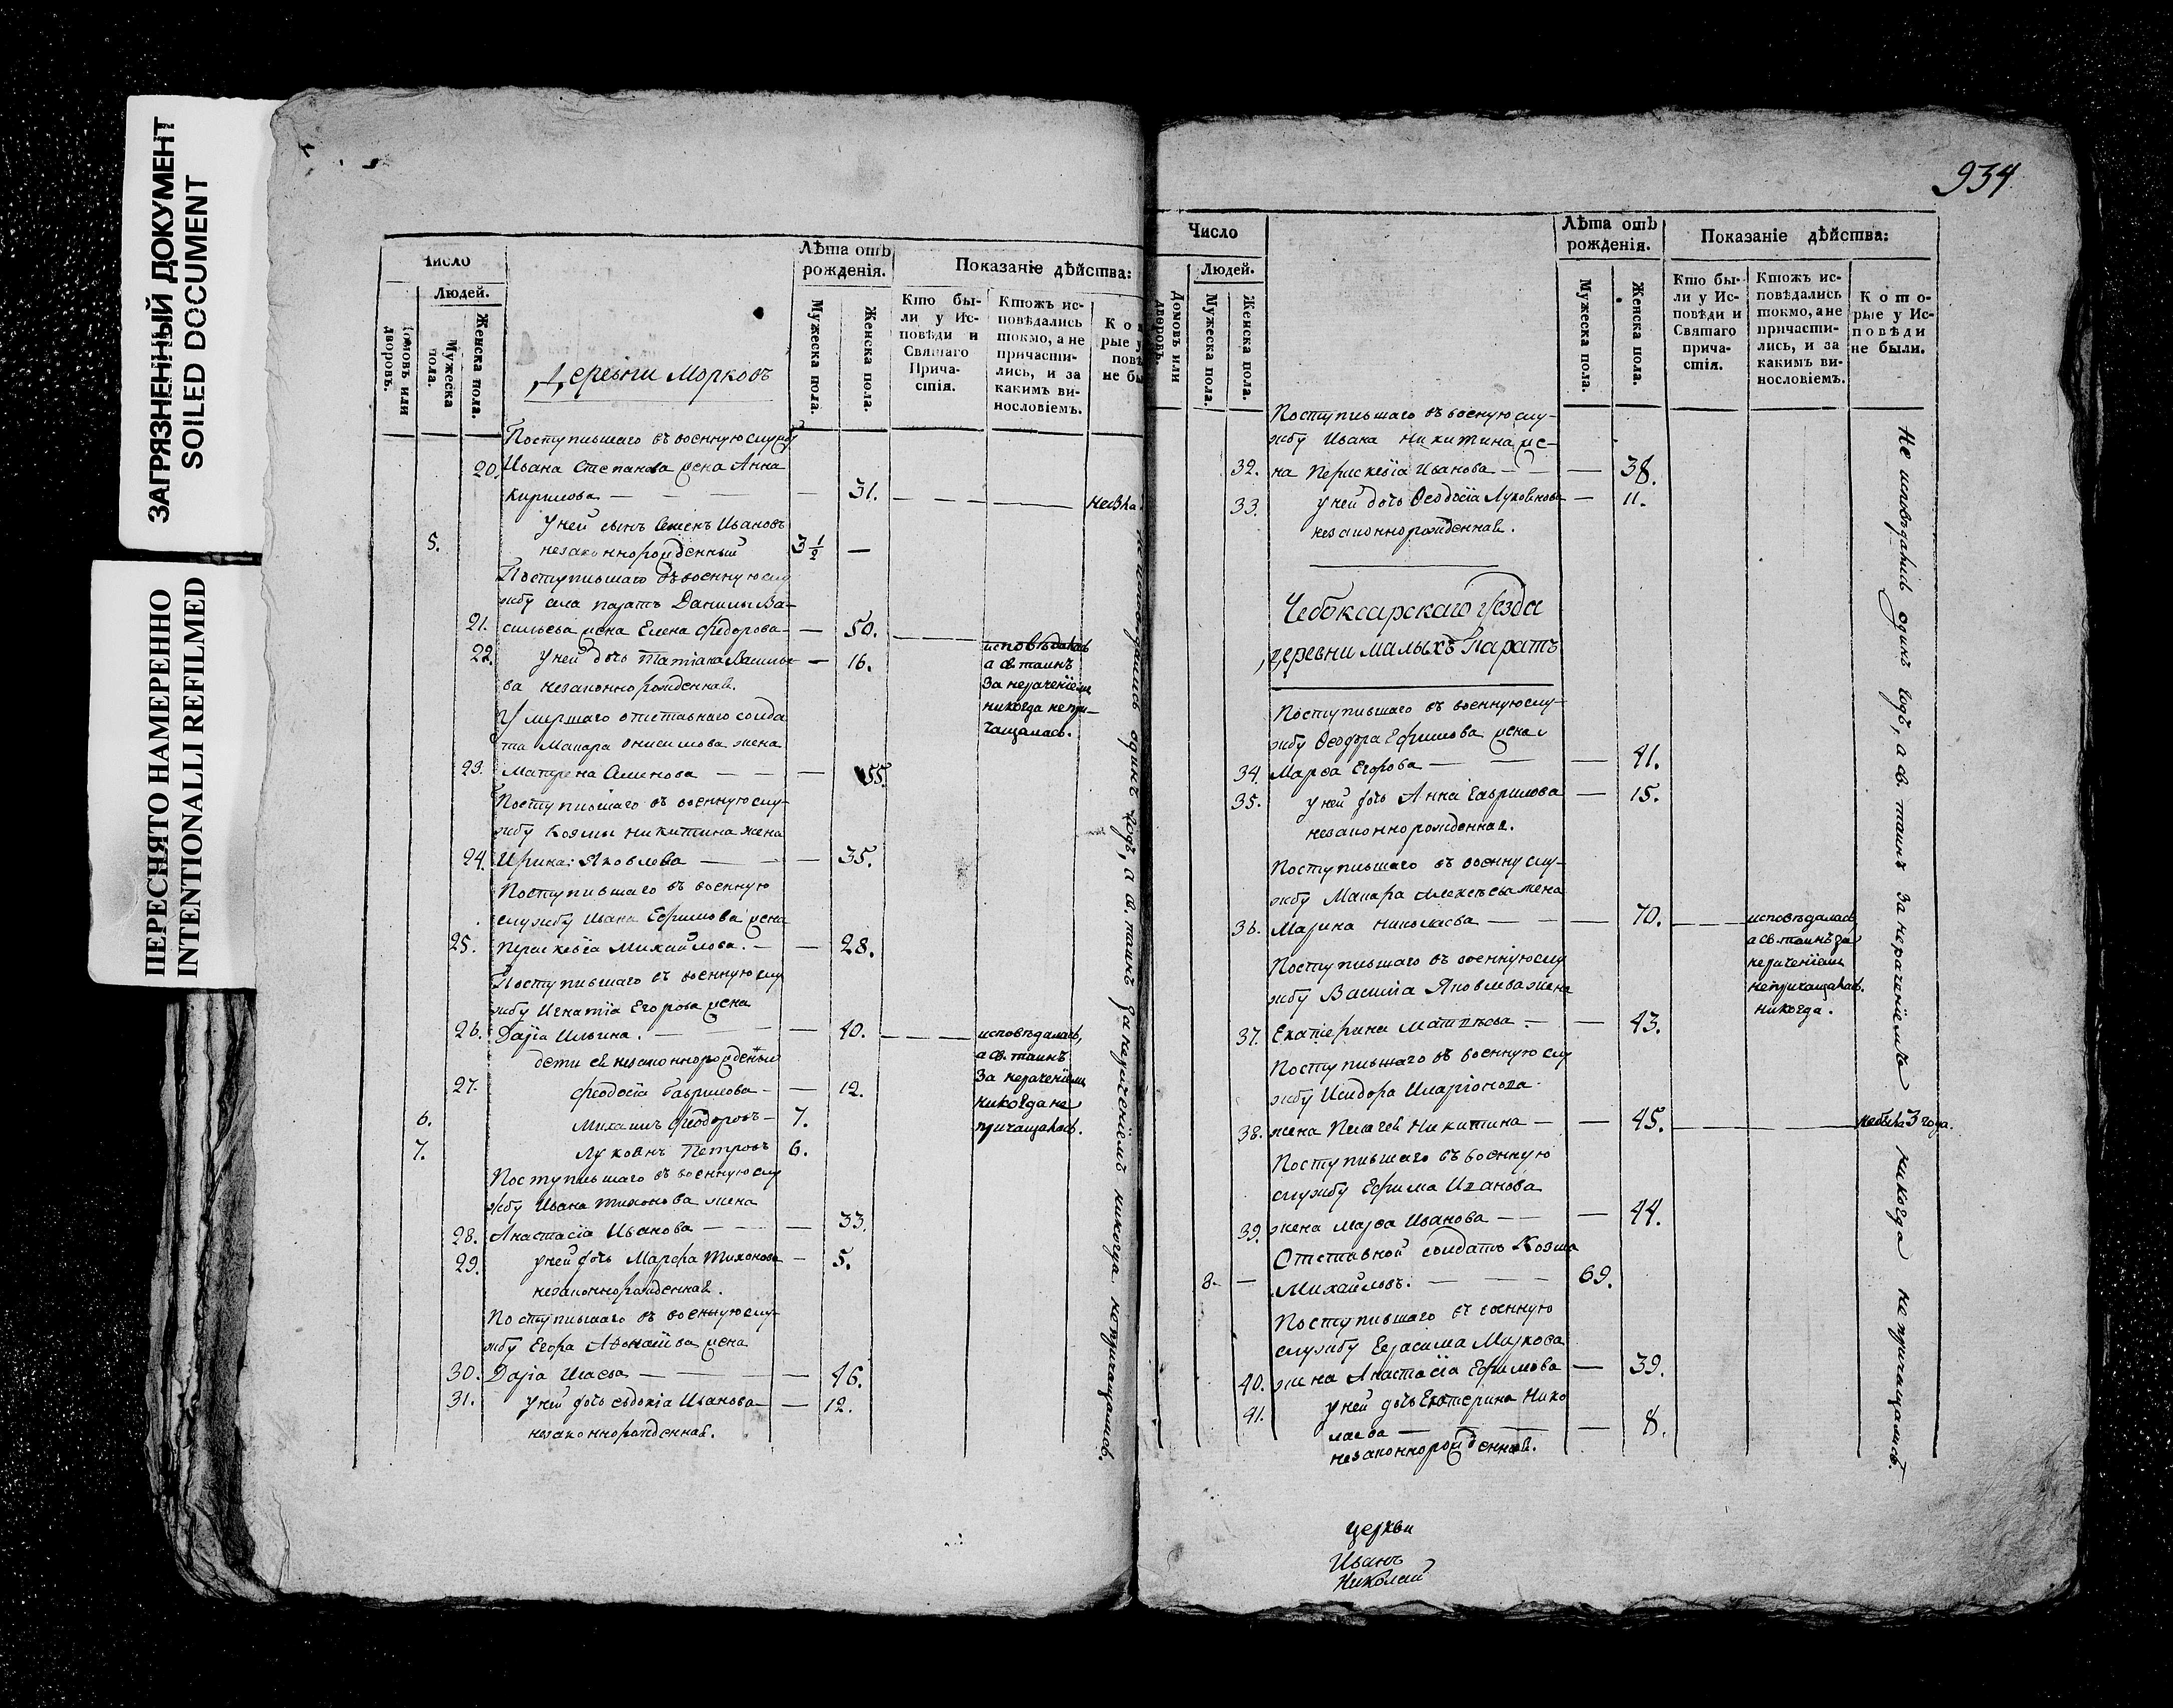 ЗАГРЯЗНЕННЫЙ ДОКУМЕНТ
SOILED DOCUMENT
ПЕРЕСНЯТО НАМЕРЕННО
INTENTIONALLI REFILMED
Число
Людей.
Домовъ или дворовъ.
Мужеска пола.
Женска пола.
Деревни Морковъ
Лѣта отъ рожденія.
Мужеска пола.
Женска пола.
Показаніе дѣйства:
Кто бы-
ли у Ис-
повѣди и
Святаго
Прича-
стія.
Ктожъ ис-
повѣдались
токмо, а не
причасти-
лись, и за
какимъ ви-
нословіемъ.
Поступившаго въ военную служб
20. Ивана Степанова жена Анна
Кирилова — — — — 31. — — —
у ней сынъ Семенъ Ивановъ
5. незаконнорожденный 3 1/2 —
Поступившаго въ военную слу
жбу села паратъ Данилы Ва-
21. сильева жена Елена Федорова — — 50. — —
22. у ней дочь Татіана Василье — 16.
ва незаконнорожденная.
исповѣдалась
а св. таинъ
за нераченіемъ
никогда непри-
чащалась.
Умершаго отставнаго солда
та Макара Онисимова жена
23. Матрена Семенова — — — 55.
Поступившаго въ военную слу-
жбу Козмы Никитина жена
24. Ирина Яковлева — — — 35.
Поступившаго въ военную
службу Ивана Ефимова жена
25. Пераскевіа Михайлова. — — 28.
Поступившаго въ военную слу
жбу Игнатія Егорова жена
26. Дарiа Ильина. — — — 40. — — —
дети ея незаконнорожденыи
27. Феодосіа Гаврилова — — 12.
6. Михаилъ Феодоровъ — 7.
7. Лукоянъ Петровъ 6.
исповѣдалась,
а св. таинъ
за нераченіемъ
никогда не
причащалась.
Поступившаго въ военную слу
жбу Ивана Тихонова жена
28. Анастасіа Иванова — — — 33.
29. у ней дочь Марфа Тихонова — 5.
незаконнорожденная.
Поступившаго въ военную слу-
жбу Егора Афонасіева жена
30. Дарiа Исаева — — — 46.
31. у ней дочь Евдокіа Иванова — 12.
незаконнорожденная.
одинъ годъ, а св. таинъ за нераченіемъ никогда непричащались.
934
Число
Людей.
Домовъ или дворовъ.
Мужеска пола.
Женска пола.
Лѣта отъ рожденія.
Мужеска пола.
Женска пола.
Показаніе дѣйства:
Кто бы-
ли у Ис-
повѣди и
Святаго
прича-
стія.
Ктожъ ис-
повѣдались
токмо, а не
причасти-
лись, и за
какимъ ви-
нословіемъ.
Кото-
рые у Ис-
повѣди
не были.
Поступившаго въ военную слу-
жбу Ивана Никитина же-
32. на Перискевіа Иванова — — 38.
33. у ней дочь Феодосіа Лукоянова — 11.
незаконнорожденная.
Чебоксарскаго уѣзда
деревни малыхъ Паратъ
Поступившаго въ военную слу-
жбу Феодора Ефимова жена
34. Марѳа Егорова — — — 41.
35. у ней дочь Анна Гаврилова — 15.
незаконнорожденная.
Поступившаго въ военну слу-
жбу Макара Алексѣева жена
36. Марина Николаева — — — 70. — —
исповѣдалась,
а св. таинъ за
нераченіемъ
непричащалась.
никогда.
Поступившаго въ военную слу
жбу Василіа Яковлева жена
37. Екатерина Матвѣева — — 43.
Поступившаго въ военную слу
жбу Исидора Иларіонова
38. жена Пелагея Никитина — — 45. — — — небыла 3 года.
Поступившаго въ военную
службу Ефима Иванова
39. жена Марѳа Иванова — — — 44.
Отставной солдатъ Козма
8. — Михайловъ. — — — 69.
Поступившаго въ военную
службу Герасима Маркова
40. жена Анастасіа Ефимова — 39.
41. у ней дочь Екатерина Нико
лаева — — — 8.
незаконнорожденная.
Не исповѣдались одинъ годъ, а св. таинъ за нераченіемъ никогда непричащались.
церкви
Иванъ
Николай